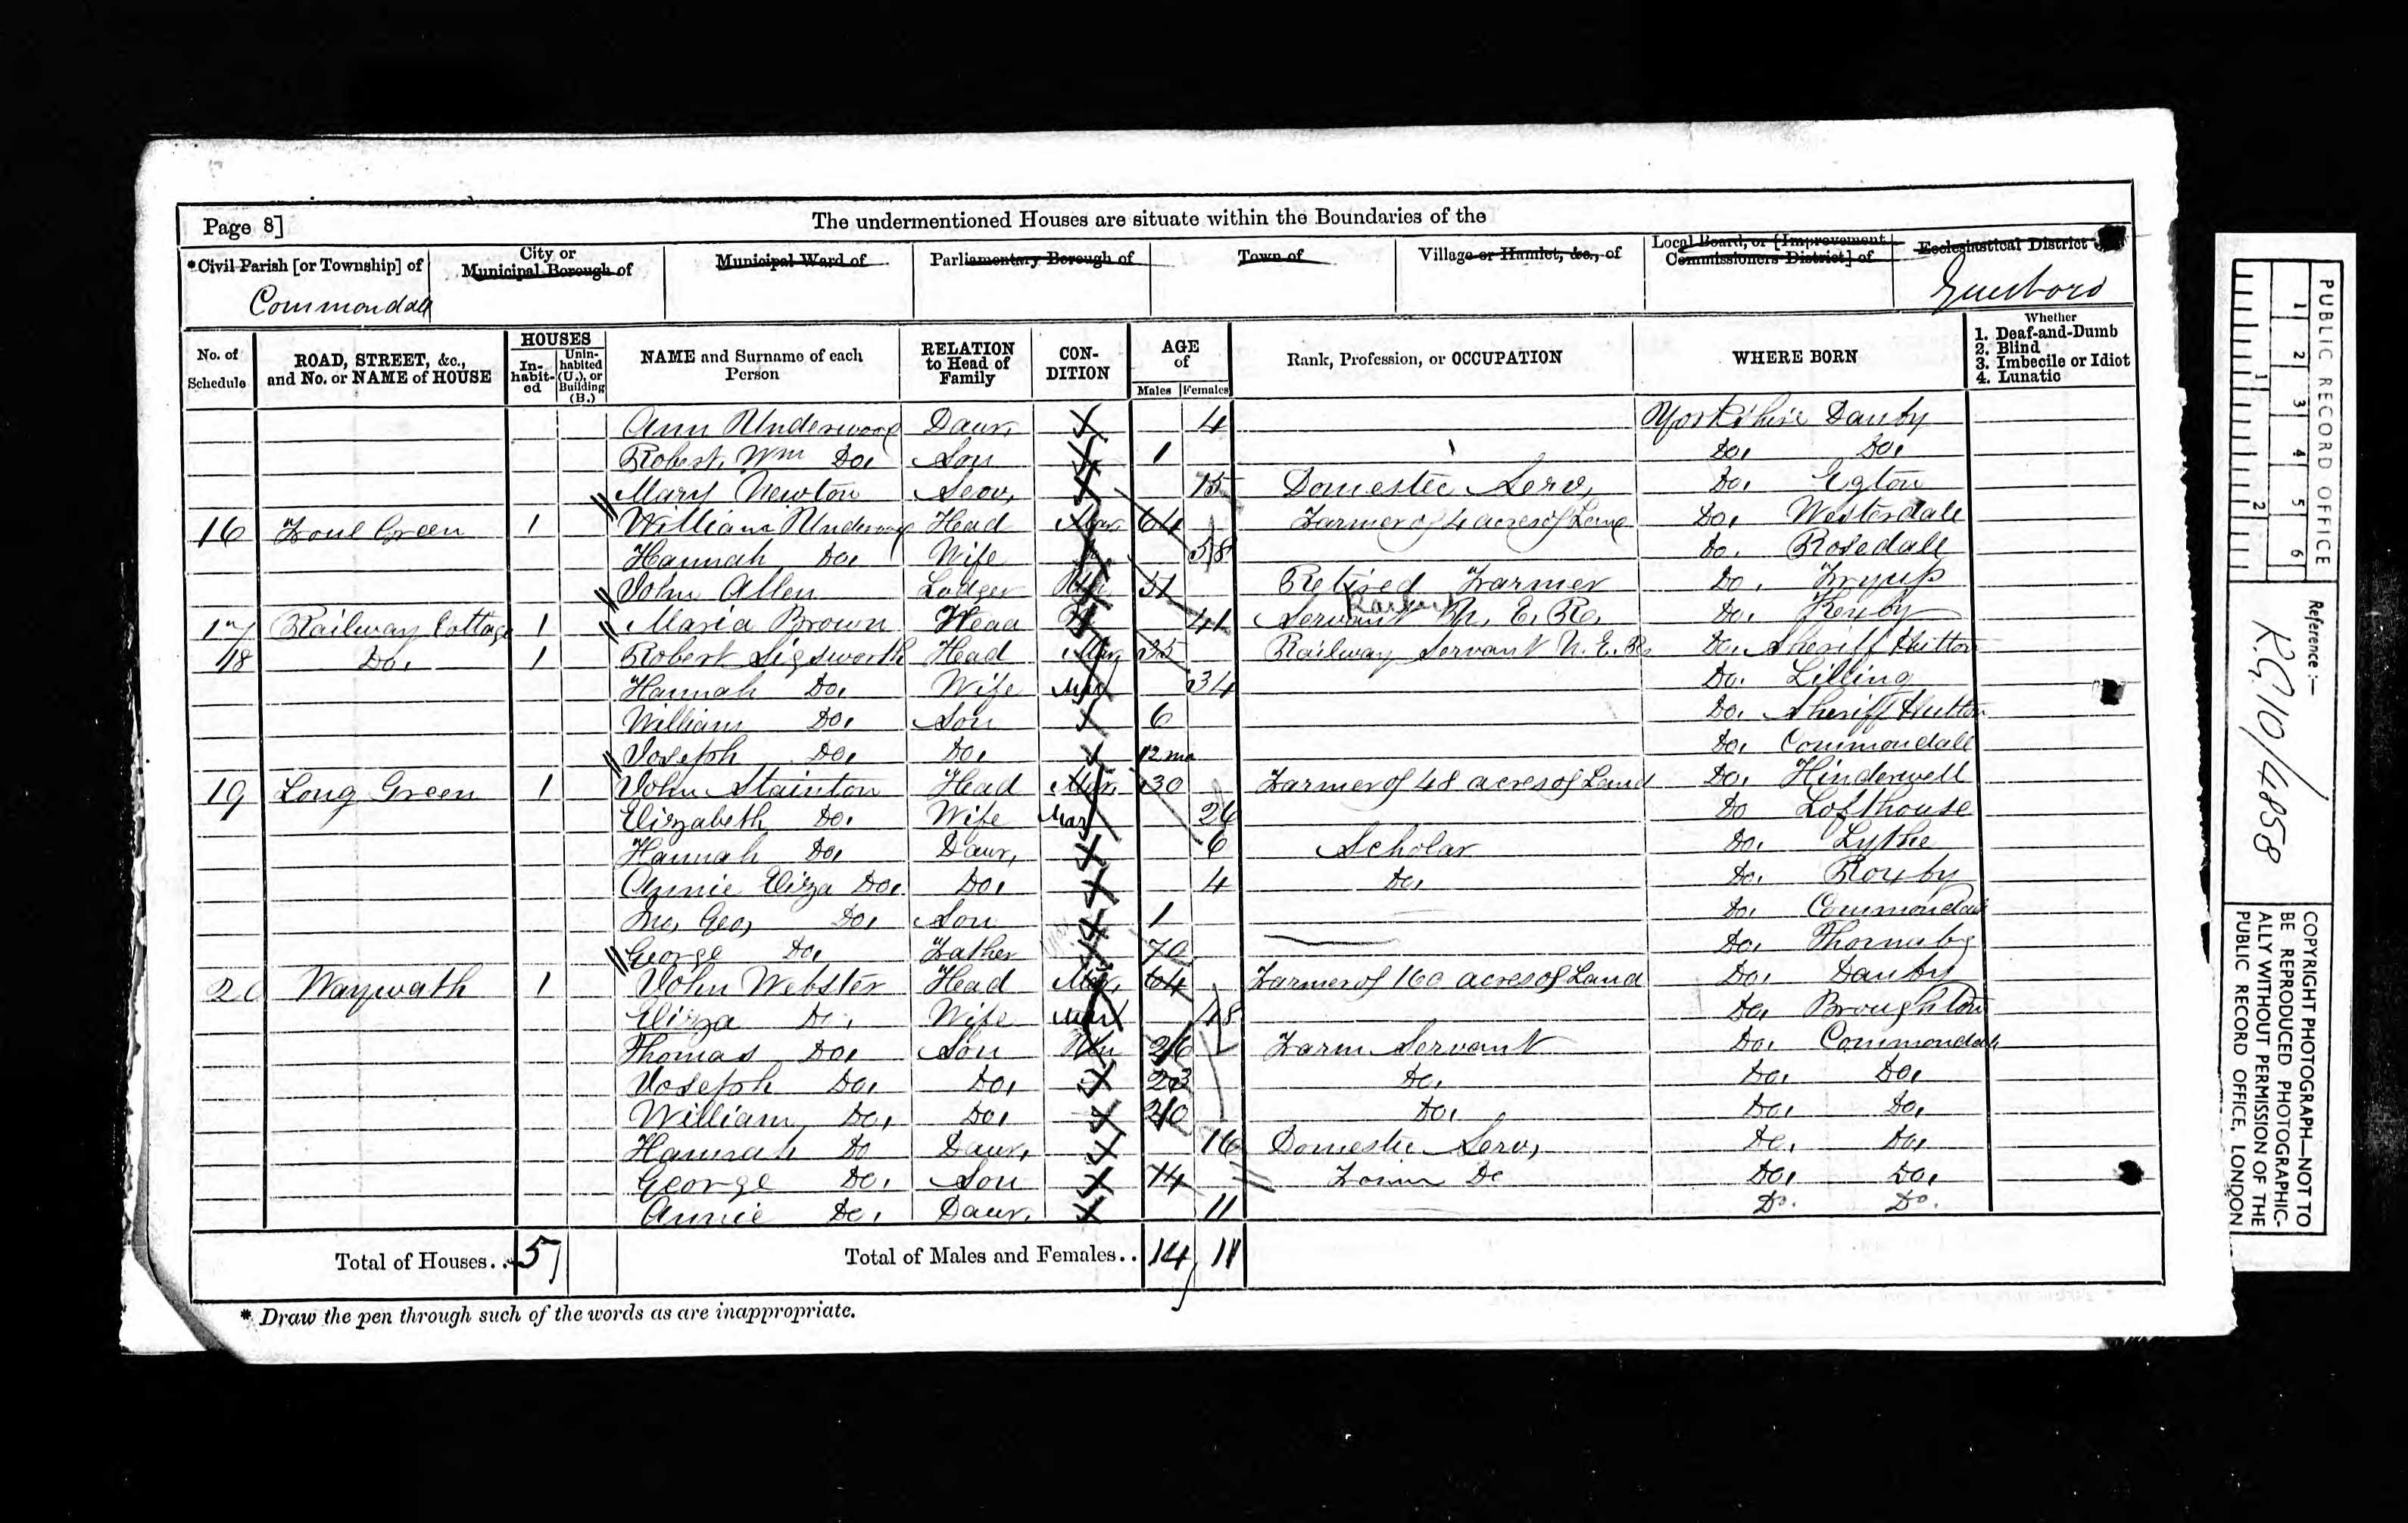 Page 8]
The undermentioned Houses are situate within the Boundaries of the
*Civil Parish [or Township] of
City or Municipal Borough of
Municipal Ward of
Parliamentary Borough of
Town of
Village or Hamlet, &c., of
Local Board, or [Improvement Commissioners District] of
Ecclesiastical District
Commondale
Guesboro
No. of Schedule
ROAD, STREET, &c., and No. or NAME of HOUSE
HOUSES
In-habit-ed
Unin-habited (U.), or Building (B.)
NAME and Surname of each Person
RELATION to Head of Family
CON-DITION
AGE of
Males Females
Rank, Profession, or OCCUPATION
WHERE BORN
Whether
1. Deaf-and-Dumb
2. Blind
3. Imbecile or Idiot
4. Lunatic
Ann Underwood Daur. 4 Yorkshire Danby
Robert Wm Do. Son 1 Do. Do.
Mary Newton Serv. 15 Domestic Serv. Do. Egton
16 Foul Green 1 William Underwood Head Mar. 64 Farmer of 4 acres of Land Do. Westerdale
Hannah Do. Wife 58 Do. Rosedale
John Allen Lodger Un 51 Retired Farmer Do. Fryup
17 Railway Cottage 1 Maria Brown Head 41 Railway Servant N. E. R. Do.
18 Do. 1 Robert Sigsworth Head Mar 35 Railway Servant N. E. R. Do. Sheriff Hutton
Hannah Do. Wife Mar 34 Do. Lilling
William Do. Son 6 Do. Sheriff Hutton
Joseph Do. Do. 12 mo Do. Commondale
19 Long Green 1 John Stainton Head Mar. 30 Farmer of 48 acres of Land Do. Hinderwell
Elizabeth Do. Wife Mar 26 Do Lofthouse
Hannah Do. Daur. 6 Scholar Do. Lythe
Annie Eliza Do. Do. 4 Do. Do. Roxby
Jno. Geo. Do. Son 1 Do. Commondale
George Do. Father 70 Do. Thornaby
20 Waywath 1 John Webster Head Mar. 64 Farmer of 160 acres of Land Do. Danby
Eliza Do. Wife Mar 48 Do. Broughton
Thomas Do. Son Un 26 Farm Servant Do. Commondale
Joseph Do. Do. 23 Do. Do. Do.
William Do. Do. 20 Do. Do. Do.
Hannah Do Daur. 16 Domestic Serv. Do. Do.
George Do. Son 14 Farm Do Do. Do.
Annie Do. Daur. 11 Do. Do.
Total of Houses.. 5
Total of Males and Females.. 14 11
* Draw the pen through such of the words as are inappropriate.
PUBLIC RECORD OFFICE
1 2 3 4 5 6
1 2
Reference:—
R.G. 10/4858
COPYRIGHT PHOTOGRAPH—NOT TO
BE REPRODUCED PHOTOGRAPHIC-
ALLY WITHOUT PERMISSION OF THE
PUBLIC RECORD OFFICE, LONDON